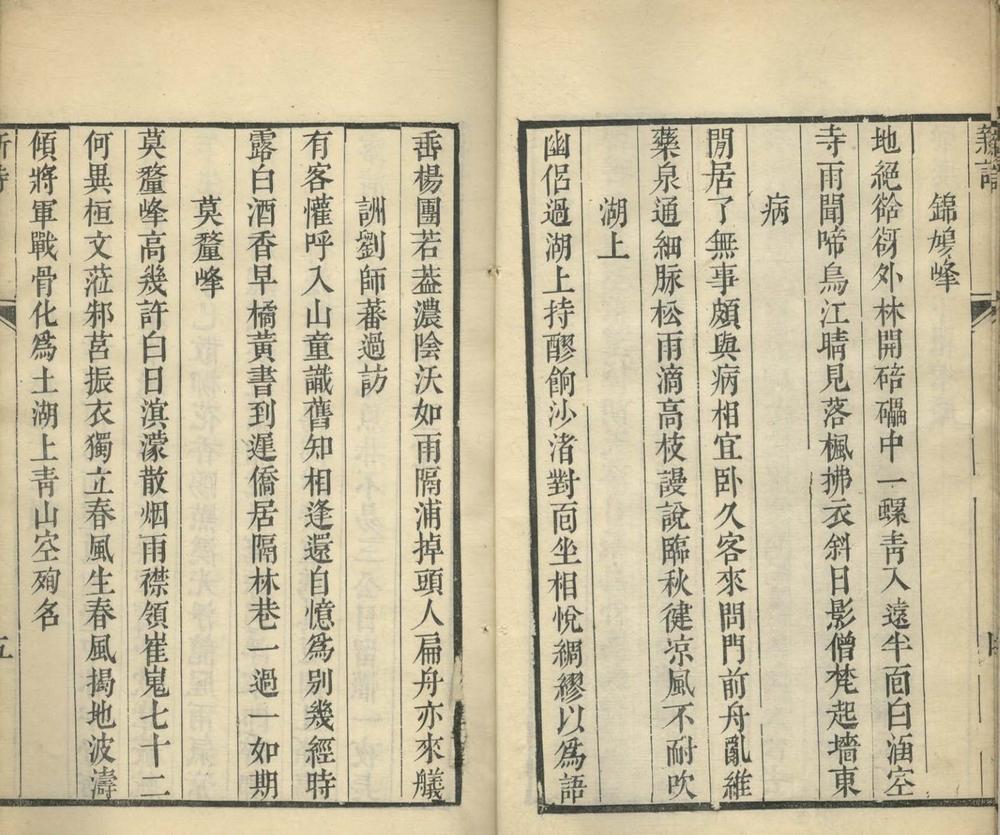 錦鳩峰
地絕谽谺外林開碚礧中一螺靑入遠半面白涵空
寺雨聞啼鳥江晴見落楓拂衣斜日影僧梵起墻東
病
閒居了無事頗與病相宜卧久客來問門前舟亂維
藥泉通細脉松雨滴高枝謾說臨秋健凉風不耐吹
湖上
幽侶過湖上持醪餉沙渚對面坐相悅綢繆以爲語
垂楊團若葢濃陰沃如雨隔浦掉頭人扁舟亦來艤
詶劉師蕃過訪
有客懽呼入山童識舊知相逢還自憶爲别幾經時
露白酒香早橘黃書到遲僑居隔林巷一過一如期
莫釐峰
莫釐峰高幾許白日滇濛散烟雨襟領崔嵬七十二
何異桓文蒞邾莒振衣獨立春風生春風揭地波濤
傾將軍戰骨化爲土湖上靑山空殉名
五